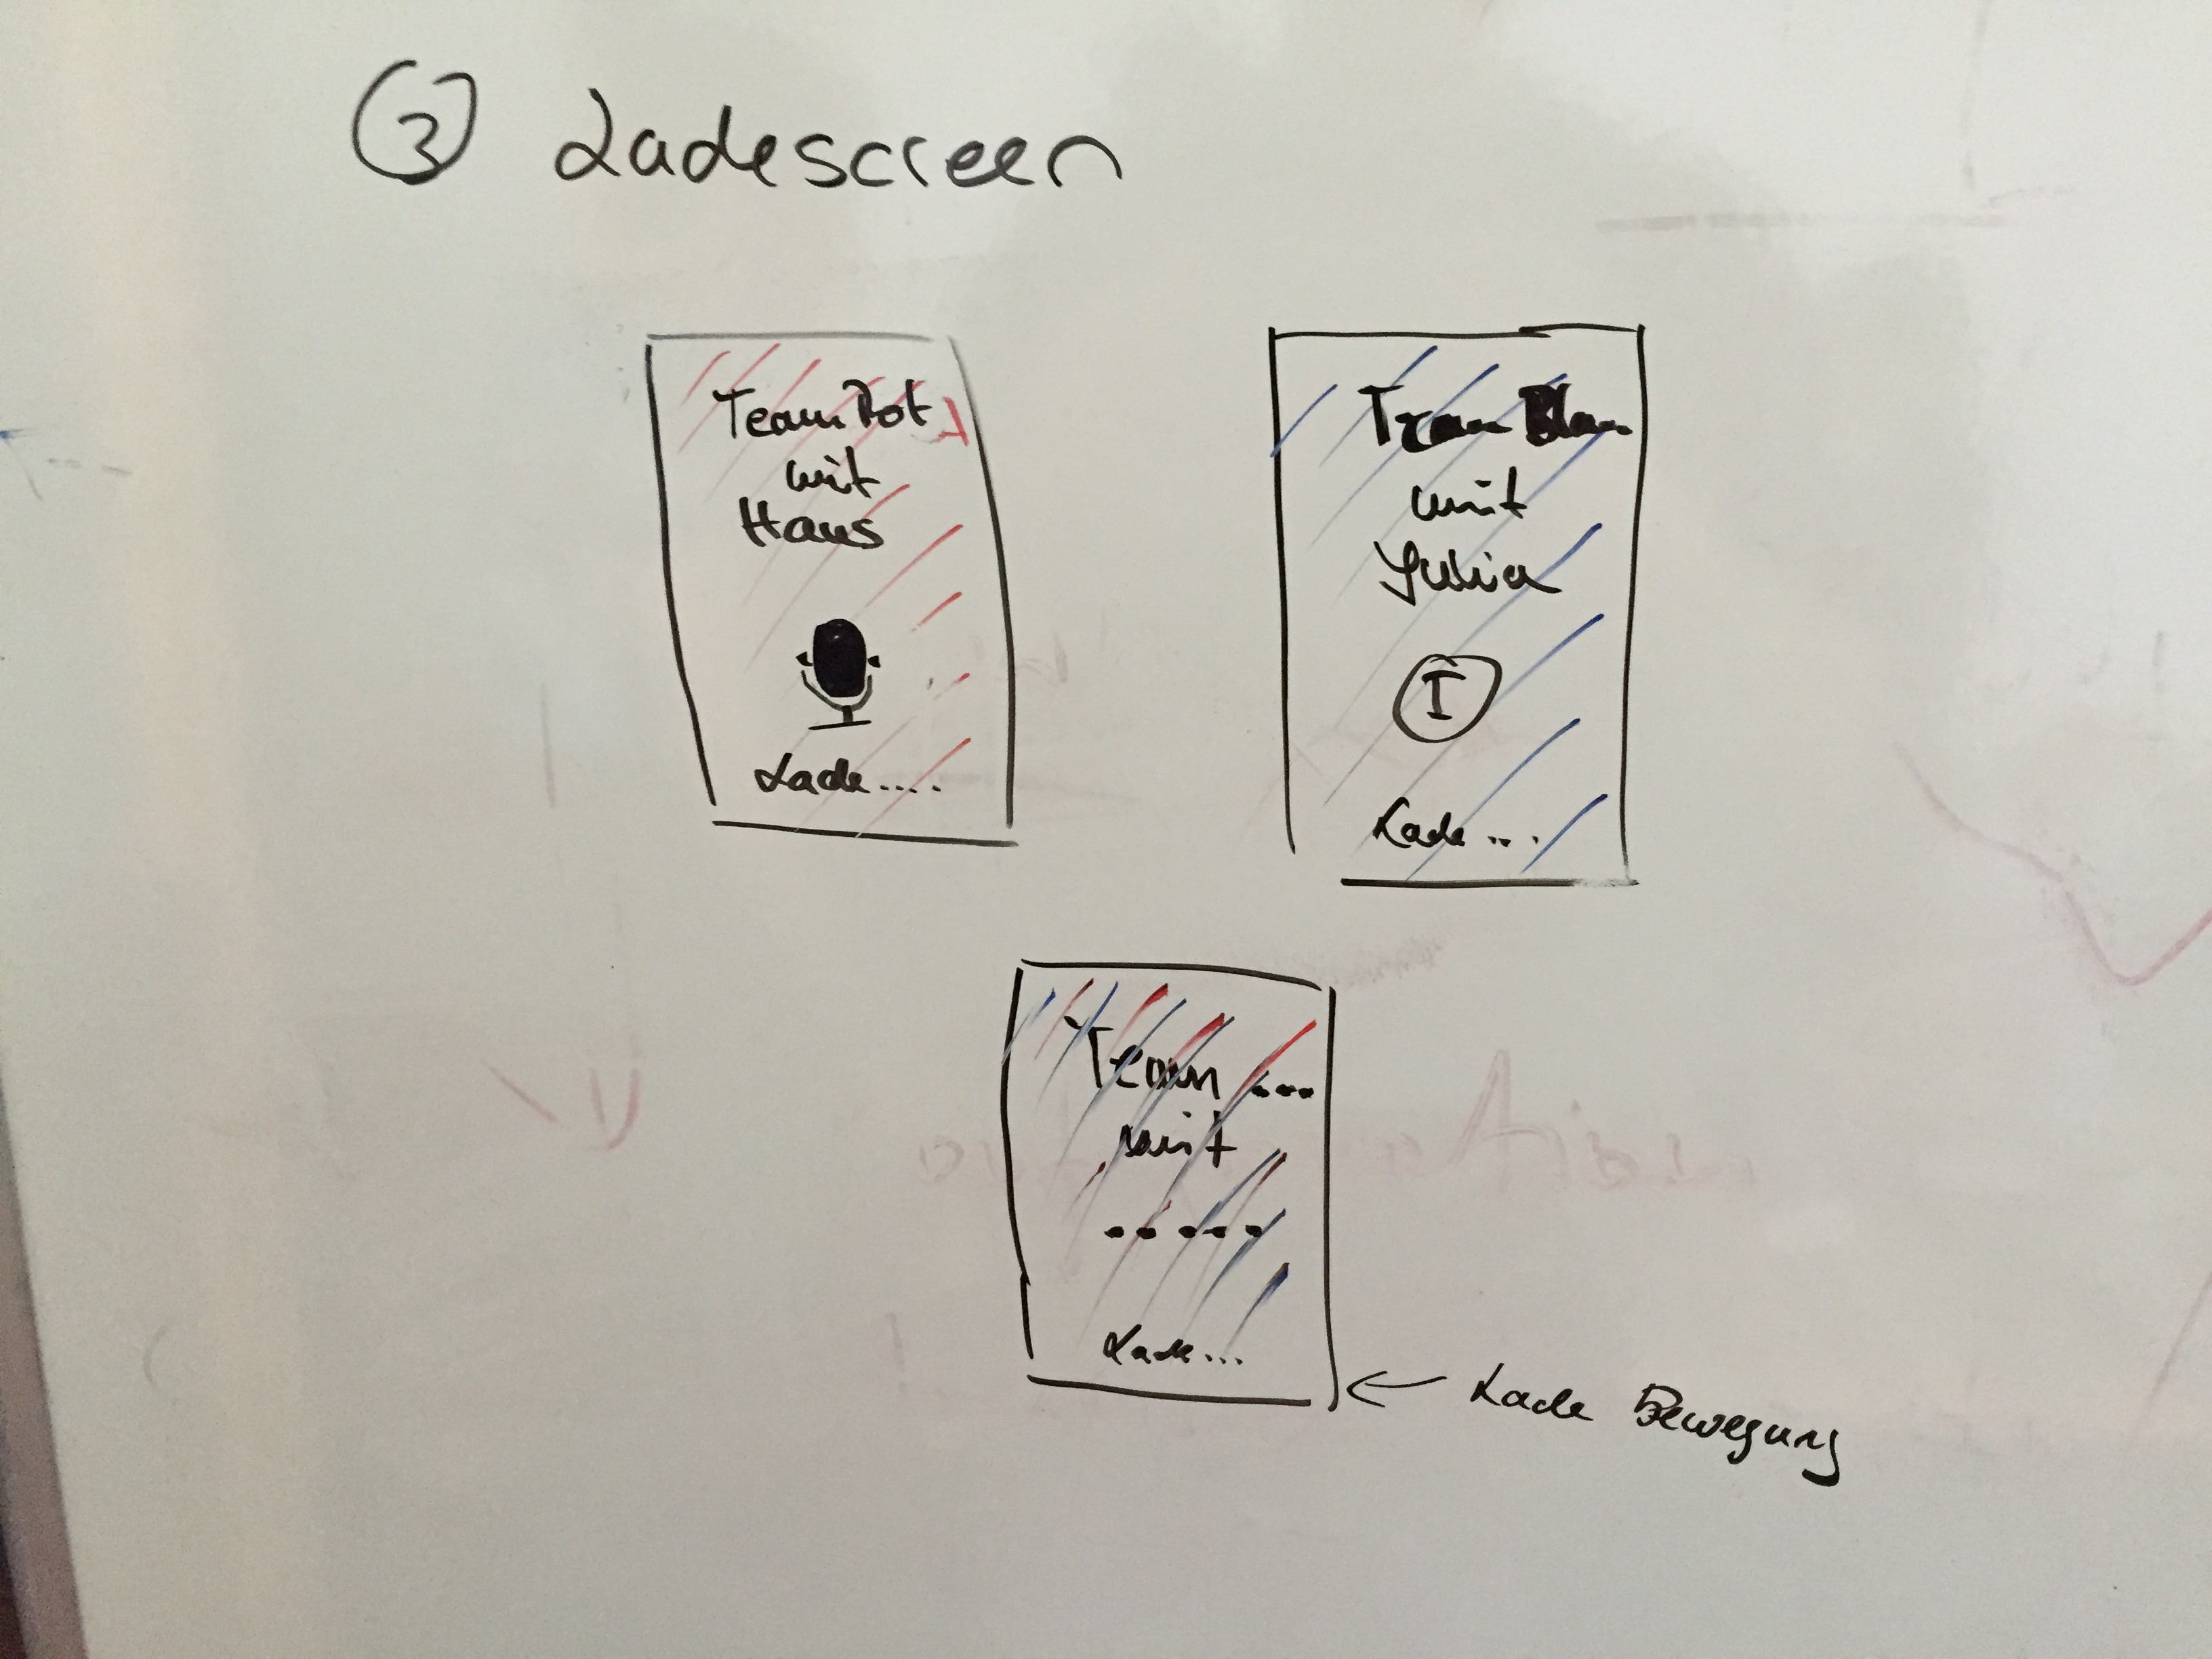 3 Ladescreen
Team Rot
mit
Hans
Lade....
Team Blau
mit
Julia
I
Lade...
Team ...
mit
.....
Lade...
← Lade Bewegung